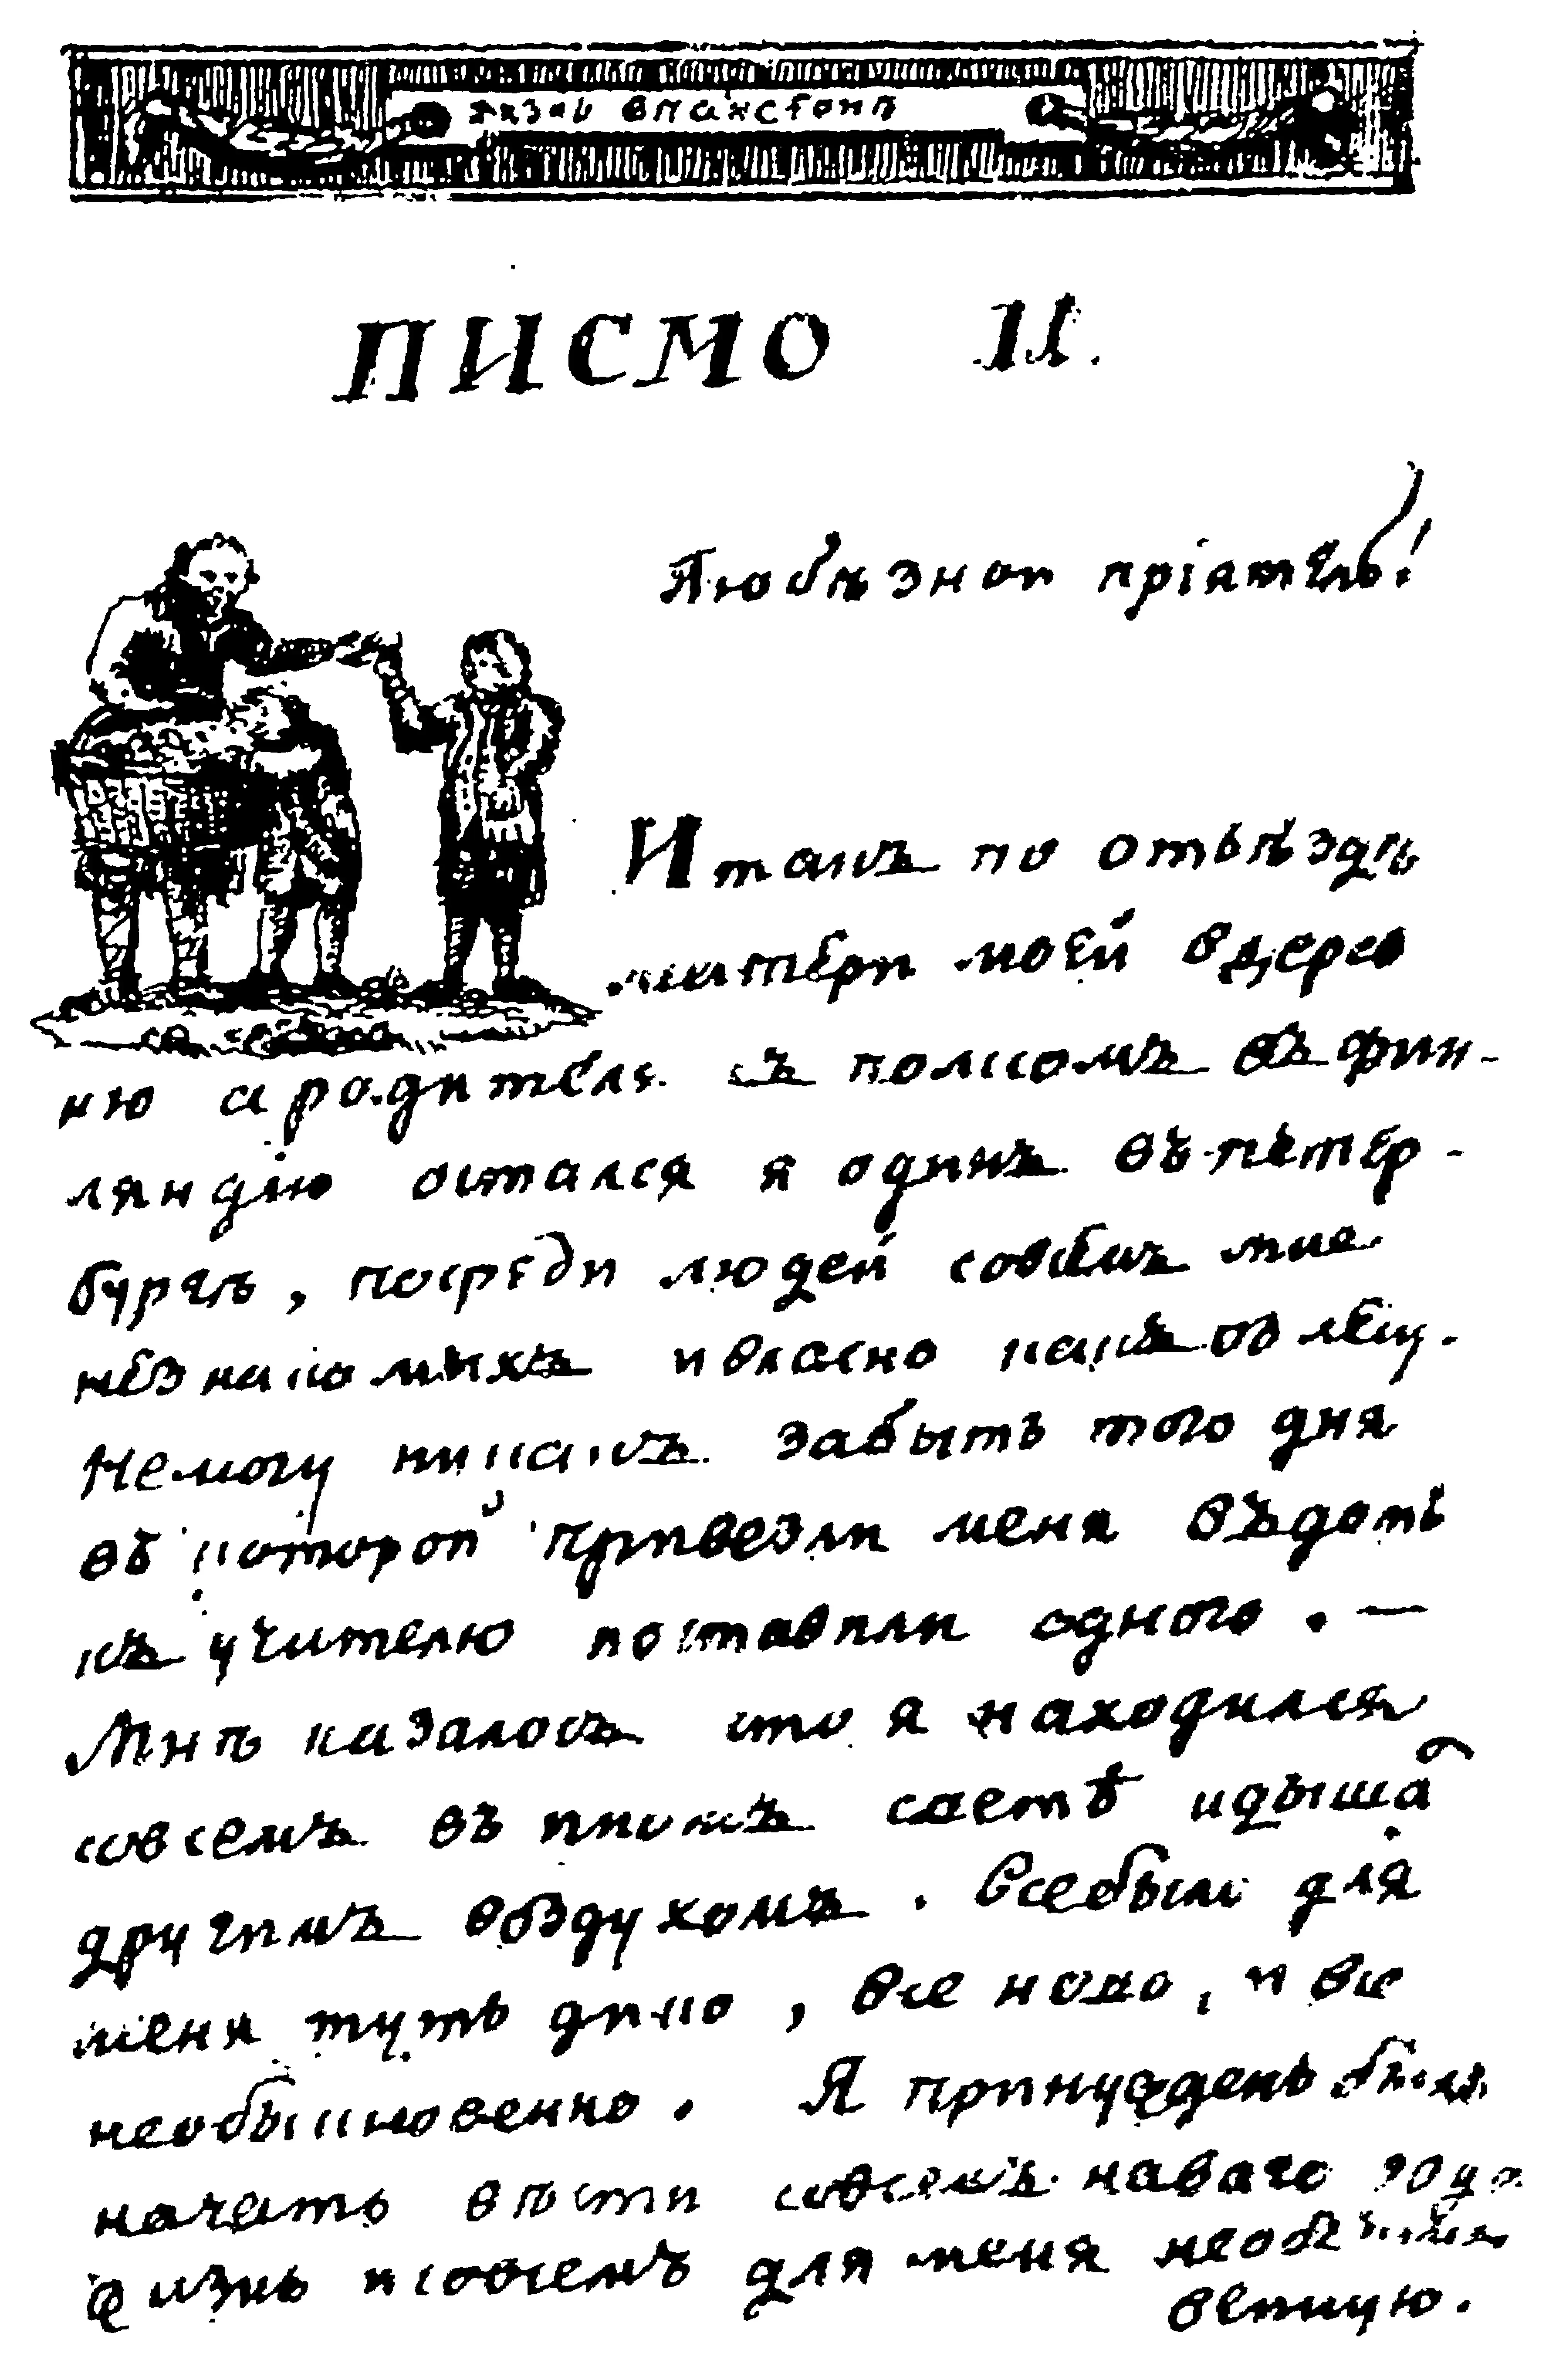 жизнь в пансионѣ
ПИСМО II.
Любѣзной пріятель!
И такъ по отьѣздѣ
матери моей вдерев
ню а родителя съ полкомъ въ фин-
ляндію остался я одинъ въ петер-
бургѣ, посреди людей совсемъ мне
незнакомыхъ ивласно какъ влесу.
Немогу никакъ забыть того дня
въ которой привезли меня въдомъ
къ учителю поставили одного. —
Мнѣ казалось что я находился
совсемъ въ иномъ светѣ идышал
другимъ воздухомъ. Всебыло для
меня туть дико, все ново, и все
необыкновенно. Я принужденъ былъ
начать вѣсти совсемъ наваго рода
жизнь исовсемъ для меня необыкно
венную.